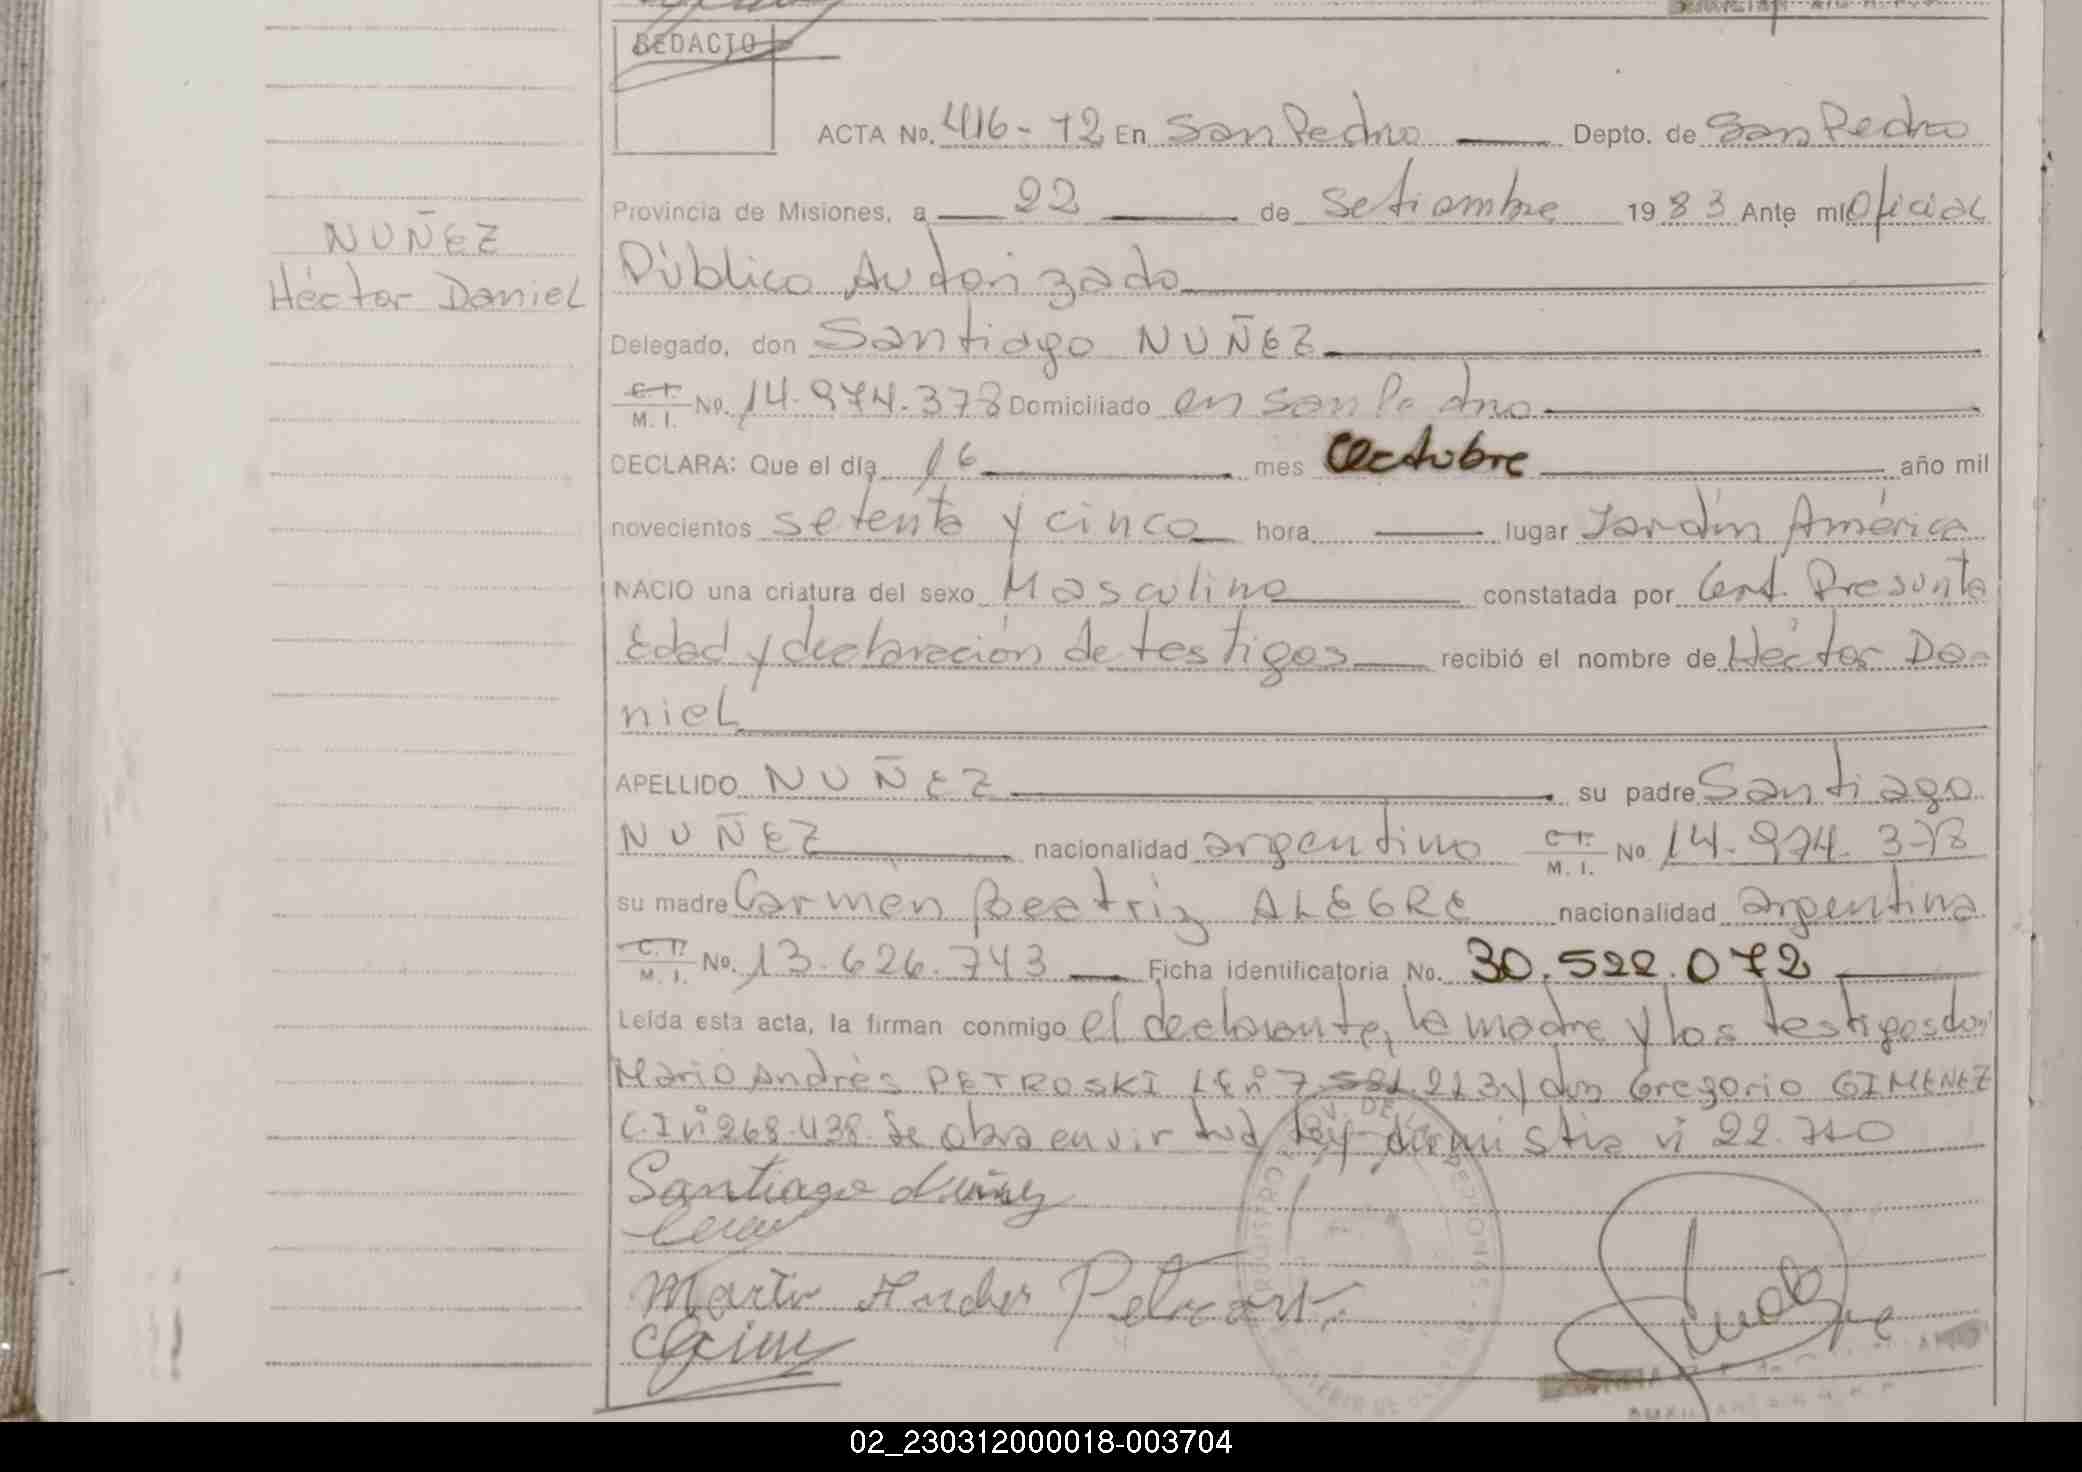 REDACTO
ACTA No. 416-72 En San Pedro Depto. de San Pedro
Provincia de Misiones, a 22 de Setiembre 1983 Ante mí Oficial
NUÑEZ
Público Autorizado
Héctor Daniel
Delegado, don Santiago NUÑEZ
C.I. M. I. No. 14.974.378 Domiciliado en San Pedro
DECLARA: Que el día 16 mes Octubre año mil
novecientos setenta y cinco hora lugar Jardín América
NACIO una criatura del sexo Masculino constatada por Cert. Presunta
Edad y declaración de testigos recibió el nombre de Héctor Da-
niel
APELLIDO NUÑEZ su padre Santiago
NUÑEZ nacionalidad argentino C.I. M. I. No 14.974.378
su madre Carmen Beatriz ALEGRE nacionalidad argentina
C.I. M. I. No. 13.626.743 Ficha identificatoria No. 30.522.072
Leída esta acta, la firman conmigo el declarante, la madre y los testigos don
Mario Andrés PETROSKI LE nº 7.581.213 y don Gregorio GIMENEZ
C.I nº 268.438. Se obra en virtud ley amnistia nº 22.710
Santiago Nuñez
02_230312000018-003704